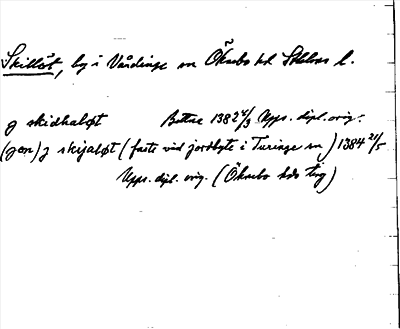 Skillöt, by i Vårdinge sn Öknebo hd Sthlms l.
j skidhaløt Bettna 1382 4/3 Upps. dipl. orig.
(gen) j skijaløt (faste vid jordbyte i Turinge sn) 1384 21/5
Upps. dipl. orig. (Öknebo hds ting)